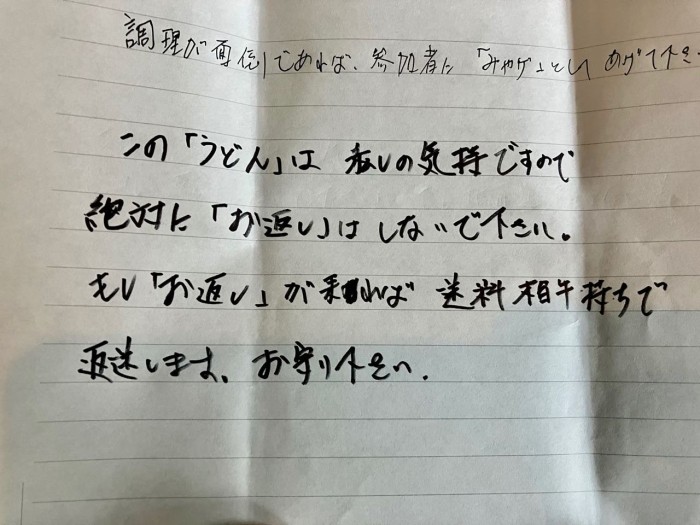 調理が面倒であれば、参加者に「みやげ」とし あげて下さ
この「うどん」は 私しの気持ですので
絶対に「お返し」は しないで下さい。
もし「お返し」が来れば 送料相手持ちで
返送します。お守り下さい.